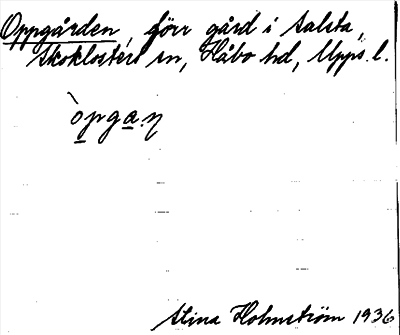 Oppgården, förr gård i Salsta,
Skoklosters sn, Håbo hd, Upps. l.
òpga.ŋ
Stina Holmström 1936